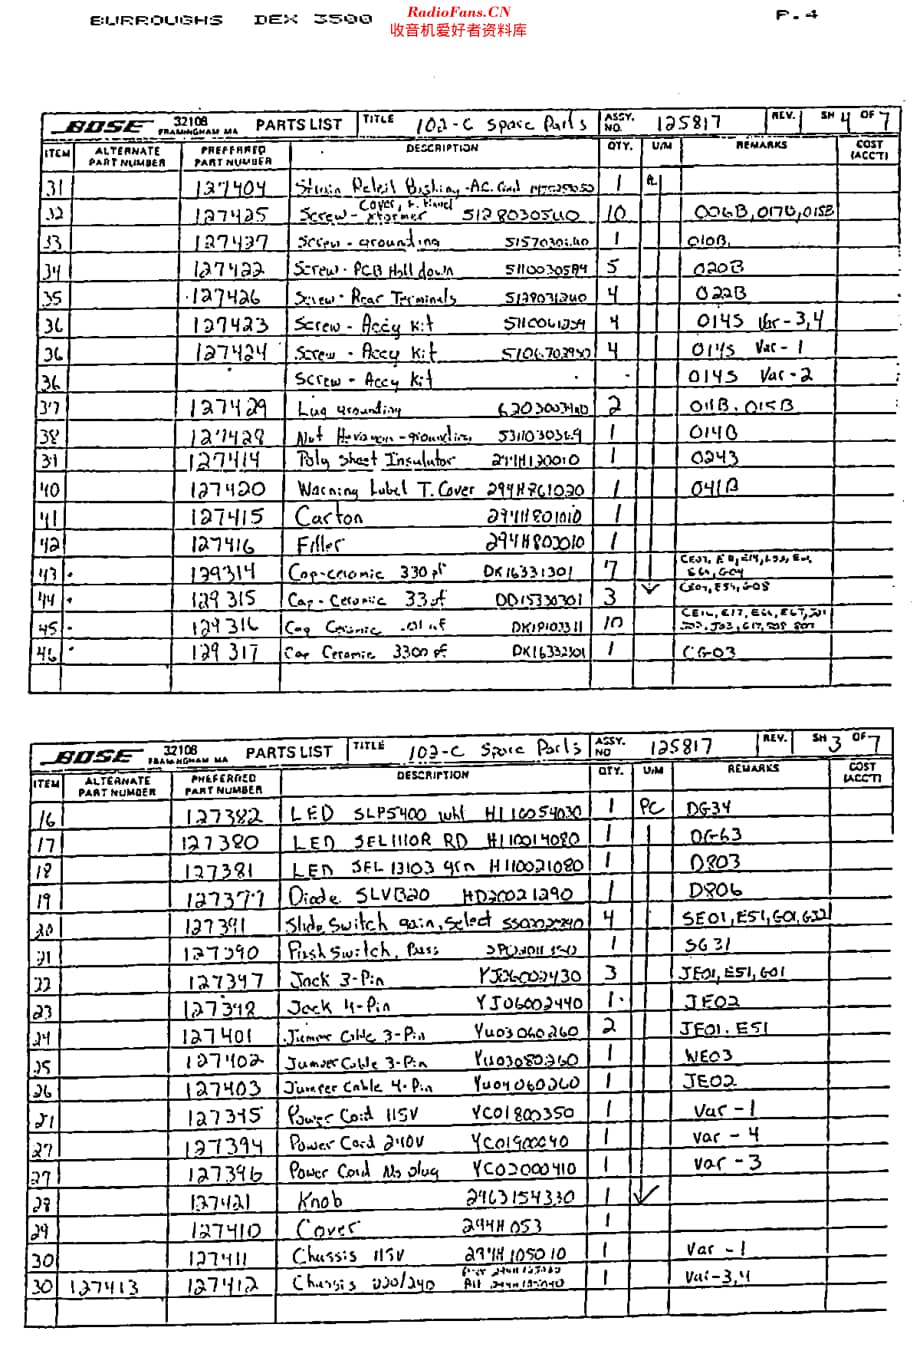 BURROUGHS DEX 3500 P.4
RadioFans.CN
收音机爱好者资料库
BOSE 32108 FRAMINGHAM MA PARTS LIST TITLE 102-C Spare Parts ASSY. NO. 125817 REV. SH 4 OF 7
ITEM ALTERNATE PART NUMBER PREFERRED PART NUMBER DESCRIPTION QTY. U/M REMARKS COST (ACC'T)
31 127404 Bushing - A.C. 1
Cover, F. Panel
32 127425 Screw - 51280305U0 10 006B, 017B, 015B
33 127427 Screw - grounding 1 010B.
34 127422 Screw - PCB Holddown 5 020B
35 127426 Screw - Rear Terminals 4 022B
36 127423 Screw - Accy Kit 4 014S Var-3,4
36 127424 Screw - Accy Kit 4 014S Var-1
36 Screw - Accy Kit 014S Var-2
37 127429 Lug grounding 2 011B, 015B
38 127428 Nut 1 014B
39 127414 Poly Sheet Insulator 294H130010 1 0243
40 127420 Warning Label T. Cover 294H861020 1 041B
41 127415 Carton 294H801010 1
42 127416 Filler 294H803010 1
43 129314 Cap-ceramic 330pf DK16331301 7
44 129315 Cap-Ceramic 33pf DD15330301 3 E54, G08
45 129316 Cap Ceramic .01uf 10
46 129317 Cap Ceramic 3300pf DK16332301 1 CG03
BOSE 32108 FRAMINGHAM MA PARTS LIST TITLE 102-C Spare Parts ASSY. NO 125817 REV. SH 3 OF 7
ITEM ALTERNATE PART NUMBER PREFERRED PART NUMBER DESCRIPTION QTY. U/M REMARKS COST (ACC'T)
16 127382 LED SLP5400 wht HI10054030 1 PC DG34
17 127380 LED SEL1110R RD HI10014080 1 DG63
18 127381 LED SEL 13103 grn HI10021080 1 D803
19 127377 Diode SLVB20 HD20021290 1 D806
20 127391 Slide Switch gain, Select 4 SE01, E51, G01, G32
21 127390 Push Switch, Bass 1 SG31
22 127397 Jack 3-Pin YJ06002430 3 JE01, E51, G01
23 127398 Jack 4-Pin YJ06002440 1 JE02
24 127401 Jumper Cable 3-Pin YU03060260 2 JE01, E51
25 127402 Jumper Cable 3-Pin YU03080260 1 WE03
26 127403 Jumper Cable 4-Pin YU04060260 1 JE02
27 127395 Power Cord 115V YC01800350 1 Var-1
27 127394 Power Cord 240V YC01900040 1 Var-4
27 127396 Power Cord No plug YC02000410 1 Var-3
28 127421 Knob 2963154330 1
29 127410 Cover 294H053 1
30 127411 Chassis 115V 294H105010 1 Var-1
30 127413 127412 Chassis 220/240 1 Var-3,4